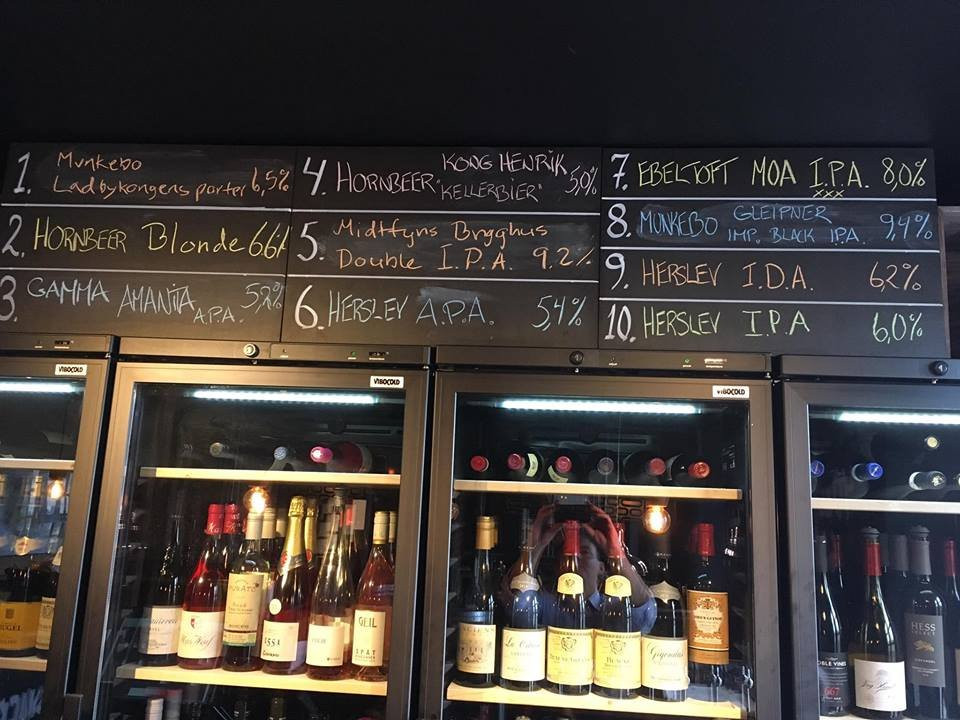 1. Munkebo
Ladbykongens porter 6,5%
2. HORNBEER Blonde 6.6%
3. GAMMA AMANITA A.P.A. 5,2%
4. HORNBEER KONG HENRIK
"KELLERBIER" 5,0%
5. Midtfyns Brgghus
Double I.P.A. 9.2%
6. HERSLEV A.P.A. 5,4%
7. EBELTOFT MOA I.P.A. 8,0%
xxx
8. MUNKEBO GLEIPNER
IMP. BLACK I.P.A. 9,4%
9. HERSLEV I.D.A. 6.2%
10. HERSLEV I.P.A 6,0%
VIBOCOLD
VIBOCOLD
VIBOCOLD
GEIL
HESS
SELECT
NOBLE VINES
667
Gigondas